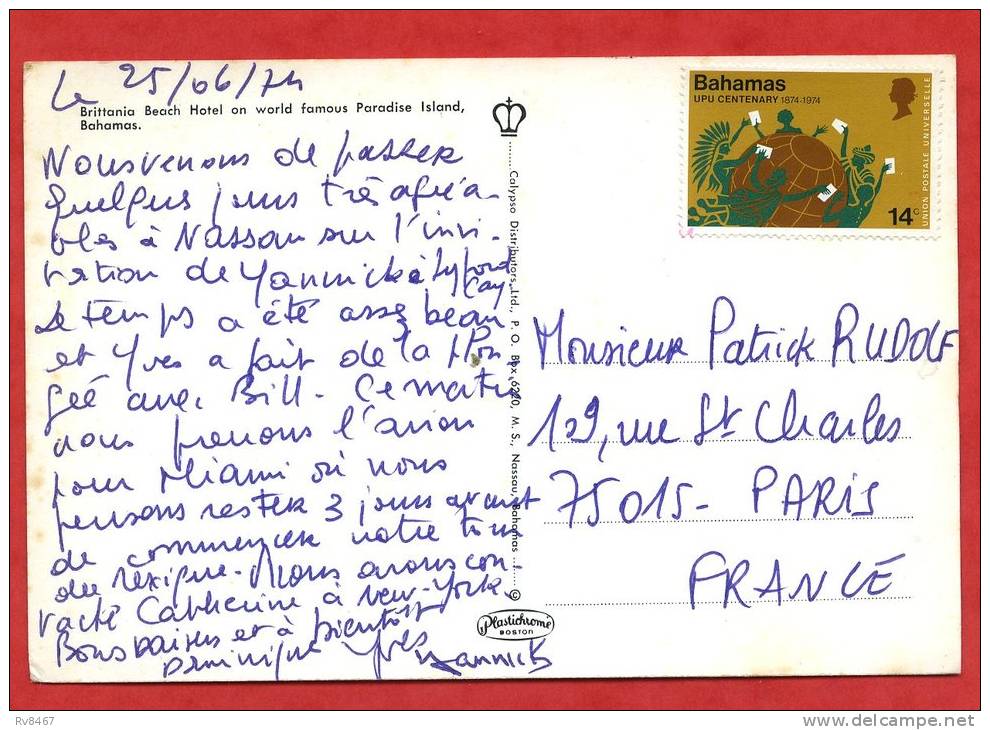 Le 25/06/74
Brittania Beach Hotel on world famous Paradise Island,
Bahamas.
Nous venons de passer
quelques jours très agréa-
bles à Nassau sur l'invi-
tation de Yannick à Lyford
Cay
Le temps a été assez beau
et Yves a fait de la plon
gée avec Bill. Ce matin
nous prenons l'avion
pour Miami où nous
pensons rester 3 jours avant
de commencer notre tour
du Mexique. Nous avons con-
tacté Catherine à New-York.
Bons baisers et à bientôt
Dominique Yves Yannick
Calypso Distributors, Ltd., P. O. Box 6220, M. S., Nassau, Bahamas
©
Plastichrome
BOSTON
Bahamas
UPU CENTENARY 1874-1974
UNION POSTALE UNIVERSELLE
14c
Monsieur Patrick RUDOLF
109, rue St Charles
75015- PARIS
FRANCE
Rv8467
www.delcampe.net